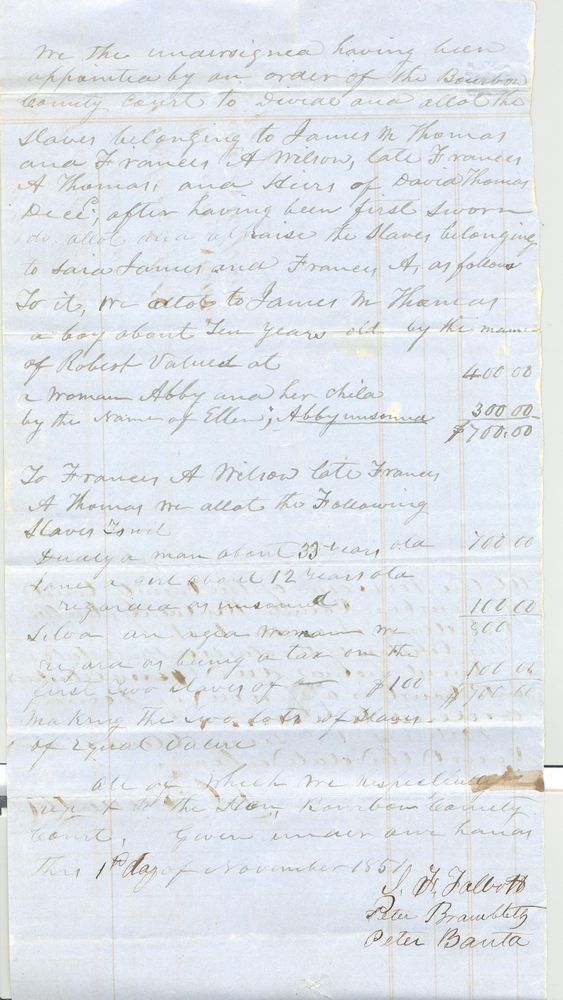 We the undersigned having been
appointed by an order of the Bourbon
County Court to Divide and allot the
Slaves belonging to James M Thomas
and Frances A Wilson, late Frances
A Thomas, and Heirs of David Thomas
Decd; after having been first Sworn
do allot and appraise the Slaves belonging
to Said James and Frances A, as follows
To it, We allot to James M Thomas
a boy about Ten years old by the name
of Robert Valued at 400 00
a Woman Abby and her child
by the Name of Ellen; Abby unsound 300 00
$700.00
To Frances A Wilson late Frances
A Thomas We allot the Following
Slaves Towit
a man about 33 years old 700 00
a girl about 12 Years old
regarded as unsound 100 00
an aged Woman We 800
regard as being a tax on the
first two Slaves of $100 100 00
$700 00
Making the two Lots of Slaves
of Equal Value
all of Which We respectfully
to the Hon, Bourbon County
Court, Given under our hands
This 1st day of November 1851
Talbott
Peter
Peter Banta